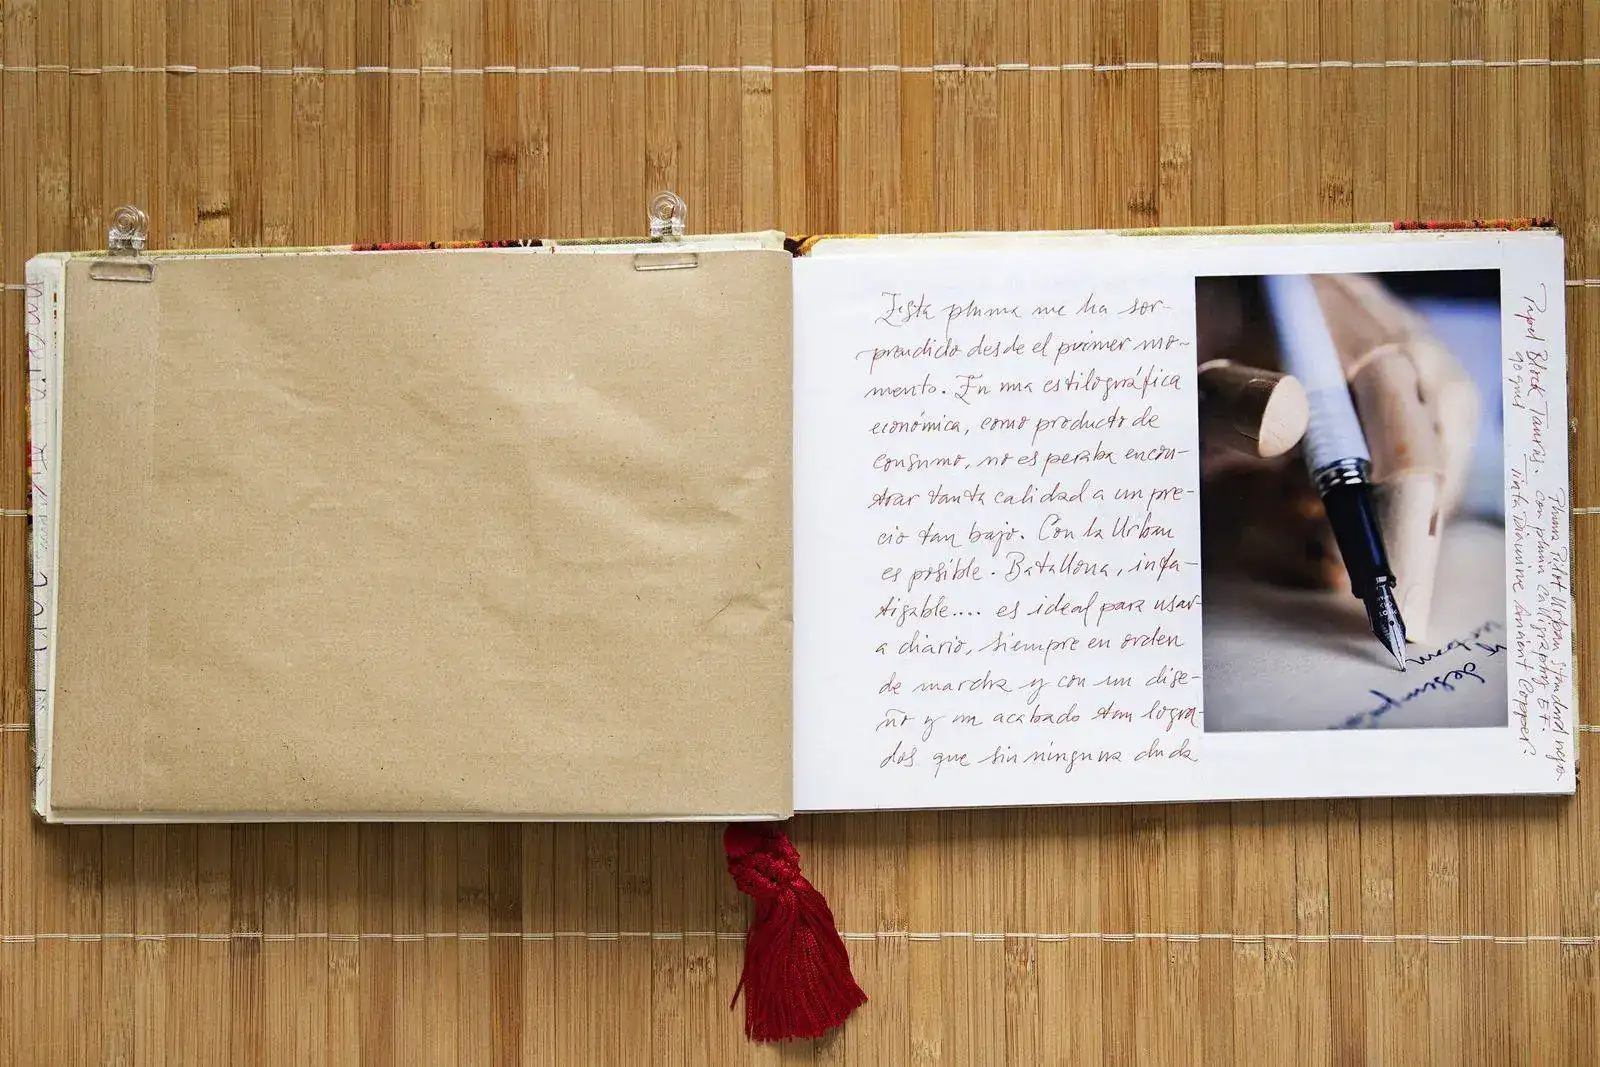 Esta pluma me ha sor-
prendido desde el primer mo-
mento. En una estilográfica
económica, como producto de
consumo, no esperaba encon-
trar tanta calidad a un pre-
cio tan bajo. Con la Urban
es posible. Batallona, infa-
tigable.... es ideal para usar
a diario, siempre en orden
de marcha y con un dise-
ño y un acabado tan logra-
dos que sin ninguna duda
Papel Block Tauras.
90 gms
Pluma Pilot Urban standard negra
con plumín Calligraphy EF.
Tinta Diamine Ancient Copper.